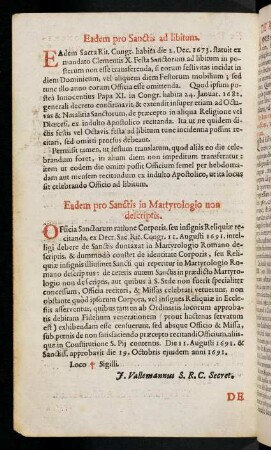 Eadem pro Sanctis ad libitum.
EAdem Sacra Rit. Congr. habita die 2. Dec. 1673. statuit ex
mandato Clementis X. Festa Sanctorum ad libitum in
posterum non esse transferenda, si eorum festivitas incidat in
diem Dominicum, vel aliquem diem Festorum mobilium; sed
tunc illo anno eorum Officia esse omittenda. Quod ipsum po-
stea Innocentius Papa XI. in Congr. habita 24. Januar. 1682.
generali decreto confirmavit, & extendit insuper etiam ad Octa-
vas & Natalitia Sanctorum, de præcepto in aliqua Religione vel
Diœcesi, ex indulto Apostolico recitanda. Ita ut neque si di-
ctis festis vel Octavis festa ad libitum tunc incidentia possint re-
citari, sed omitti prorsus debeant.
Permisit tamen, ut festum translatum, quod aliàs eo die cele-
brandum foret, in alium diem non impeditum transferatur:
item ut eodem die omitti possit Officium semel per hebdoma-
dam aut mensem recitandum ex indulto Apostolico, ut ita locus
sit celebrando Officio ad libitum.
Eadem pro Sanctis in Martyrologio non
descriptis.
OFficia Sanctorum ratione Corporis, seu insignis Reliquiæ re-
citanda, ex Decr. Sac. Rit. Congr. 11. Augusti 1691. intelli-
gi debere de Sanctis duntaxat in Martyrologio Romano de-
scriptis, & dummodò constet de identitate Corporis, seu Reli-
quiæ insignis illiusmet Sancti qui reperitur in Martyrologio Ro-
mano descriptus: de ceteris autem Sanctis in prædicto Martyro-
logio non descriptis, aut quibus à S. Sede non fuerit specialiter
concessum, Officia recitari, & Missas celebrari vetuerunt, non
obstante quòd ipsorum Corpora, vel insignes Reliquiæ in Eccle-
siis asserventur, quibus tamen ab Ordinariis locorum approba-
tis debitam Fidelium venerationem (prout hactenus servatum
est) exhibendam esse censuerunt, sed absque Officio & Missa,
sub pœnis de non satisfaciendo præcepto recitandi Officium, aliis-
que in Constitutione S. Pij contentis. Die 11. Augusti 1691. &
Sanctiss. approbavit die 19. Octobris ejusdem anni 1691.
Loco † Sigilli.
J. Vallemannus S. R. C. Secret.
DE